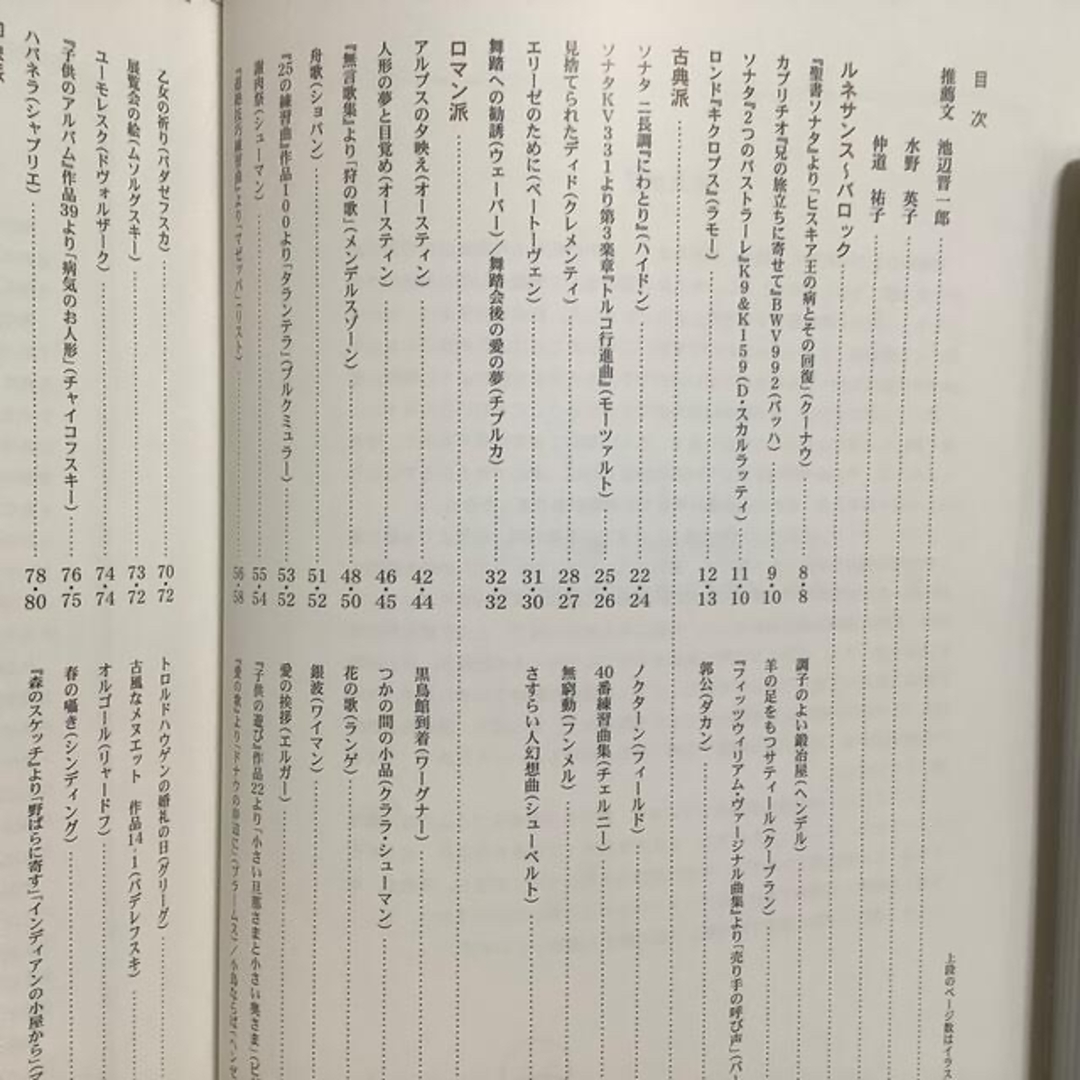 目次
推薦文 池辺晋一郎
水野 英子
仲道 祐子
ルネサンス～バロック
『聖書ソナタ』より「ヒスキア王の病とその回復」(クーナウ) 8・8
カプリチオ『兄の旅立ちに寄せて』BWV992(バッハ) 9・10
ソナタ『2つのパストラーレ』K9&K159(D・スカルラッティ) 11・10
ロンド『キクロプス』(ラモー) 12・13
調子のよい鍛冶屋(ヘンデル)
羊の足をもつサティール(クープラン)
『フィッツウィリアム・ヴァージナル曲集』より「売り手の呼び声」(バー
郭公(ダカン)
古典派
ソナタ ニ長調『にわとり』(ハイドン) 22・24
ソナタKV331より第3楽章『トルコ行進曲』(モーツァルト) 25・26
見捨てられたディド(クレメンティ) 28・27
エリーゼのために(ベートーヴェン) 31・30
舞踏への勧誘(ウェーバー)／舞踏会後の愛の夢(チブルカ) 32・32
ノクターン(フィールド)
40番練習曲集(チェルニー)
無窮動(フンメル)
さすらい人幻想曲(シューベルト)
ロマン派
アルプスの夕映え(オースティン) 42・44
人形の夢と目覚め(オースティン) 46・45
『無言歌集』より「狩の歌」(メンデルスゾーン) 48・50
舟歌(ショパン) 51・52
『25の練習曲』作品100より「タランテラ」(ブルクミュラー) 53・52
謝肉祭(シューマン) 55・54
より「マゼッパ」(リスト) 56・58
乙女の祈り(バダゼフスカ) 70・72
展覧会の絵(ムソルグスキー) 73・72
ユーモレスク(ドヴォルザーク) 74・74
『子供のアルバム』作品39より「病気のお人形」(チャイコフスキー) 76・75
ハバネラ(シャブリエ) 78・80
黒鳥館到着(ワーグナー)
つかの間の小品(クララ・シューマン)
花の歌(ランゲ)
銀波(ワイマン)
愛の挨拶(エルガー)
『子供の遊び』作品22より「小さい旦那さまと小さい奥さま」(ビ
『愛の歌』より「ドナウの岸辺に」(ブラームス)／小鳥ならば(ヘンゼ
トロルドハウゲンの婚礼の日(グリーグ)
古風なメヌエット 作品14-1(パデレフスキ)
オルゴール(リャードフ)
春の囁き(シンディング)
『森のスケッチ』より「野ばらに寄す」「インディアンの小屋から」(マ
上段のページ数はイラス